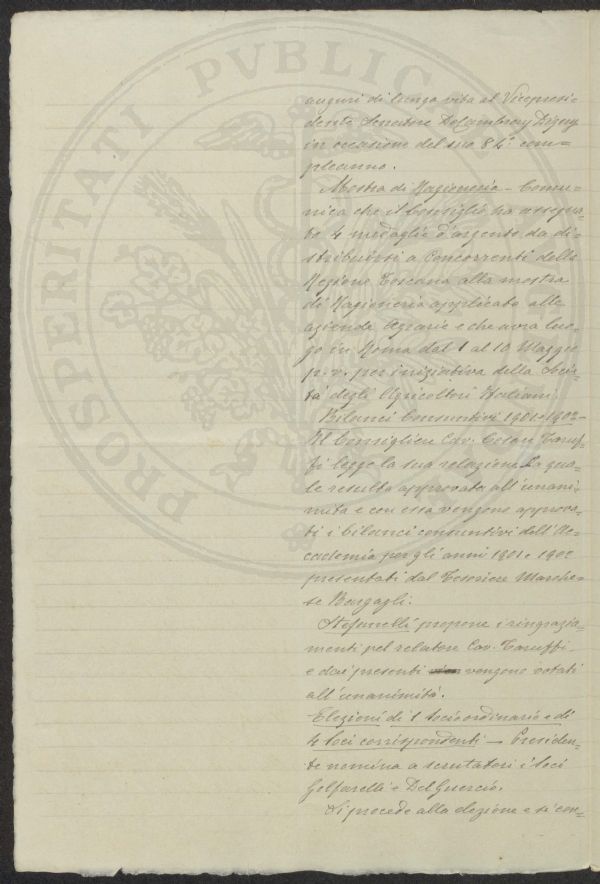 PROSPERITATI PVBLICAE
auguri di lunga vita al Vicepresi-
dente Senatore De Cambray Digny
in occasione del suo 84.° com=
pleanno.
Mostra di Ragioneria – Comu-
nica che il Consiglio ha assegna-
to 4 medaglie d'argento da di-
stribuirsi a Concorrenti della
Regione Toscana alla mostra
di Ragioneria applicata alle
aziende Agrarie e che avrà luo-
go in Roma dal 1 al 10 Maggio
p. v. per iniziativa della Socie-
tà degli Agricoltori Italiani.
Bilanci Consuntivi 1901 e 1902 –
Il Consigliere Cav. Cesare Taruf-
fi legge la sua relazione la qua-
le resulta approvata all'unani-
mità e con essa vengono approva-
ti i bilanci consuntivi dell'Ac-
cademia per gli anni 1901 e 1902
presentati dal Tesoriere Marche-
se Bargagli.
Stefanelli propone i ringrazia-
menti pel relatore Cav. Taruffi
e dai presenti vengono votati
all'unanimità.
Elezioni di 1 Socio ordinario e di
4 Soci corrispondenti – Presiden-
te nomina a scrutatori i Soci
Golfarelli e Del Guercio.
Si procede alla elezione e si con=